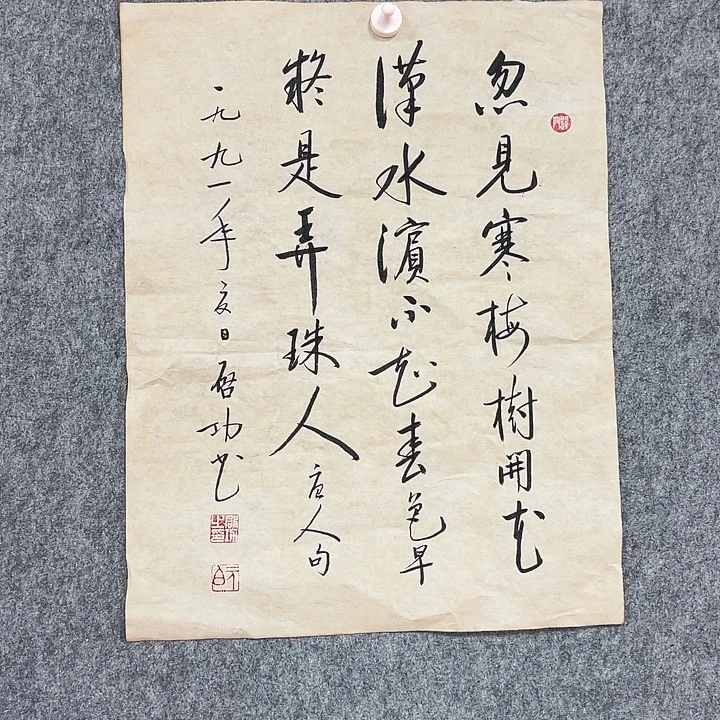 忽見寒梅樹開花
漢水濱不知春色早
疑是弄珠人唐人句
一九九一年夏日啟功書
啟功之印
元白